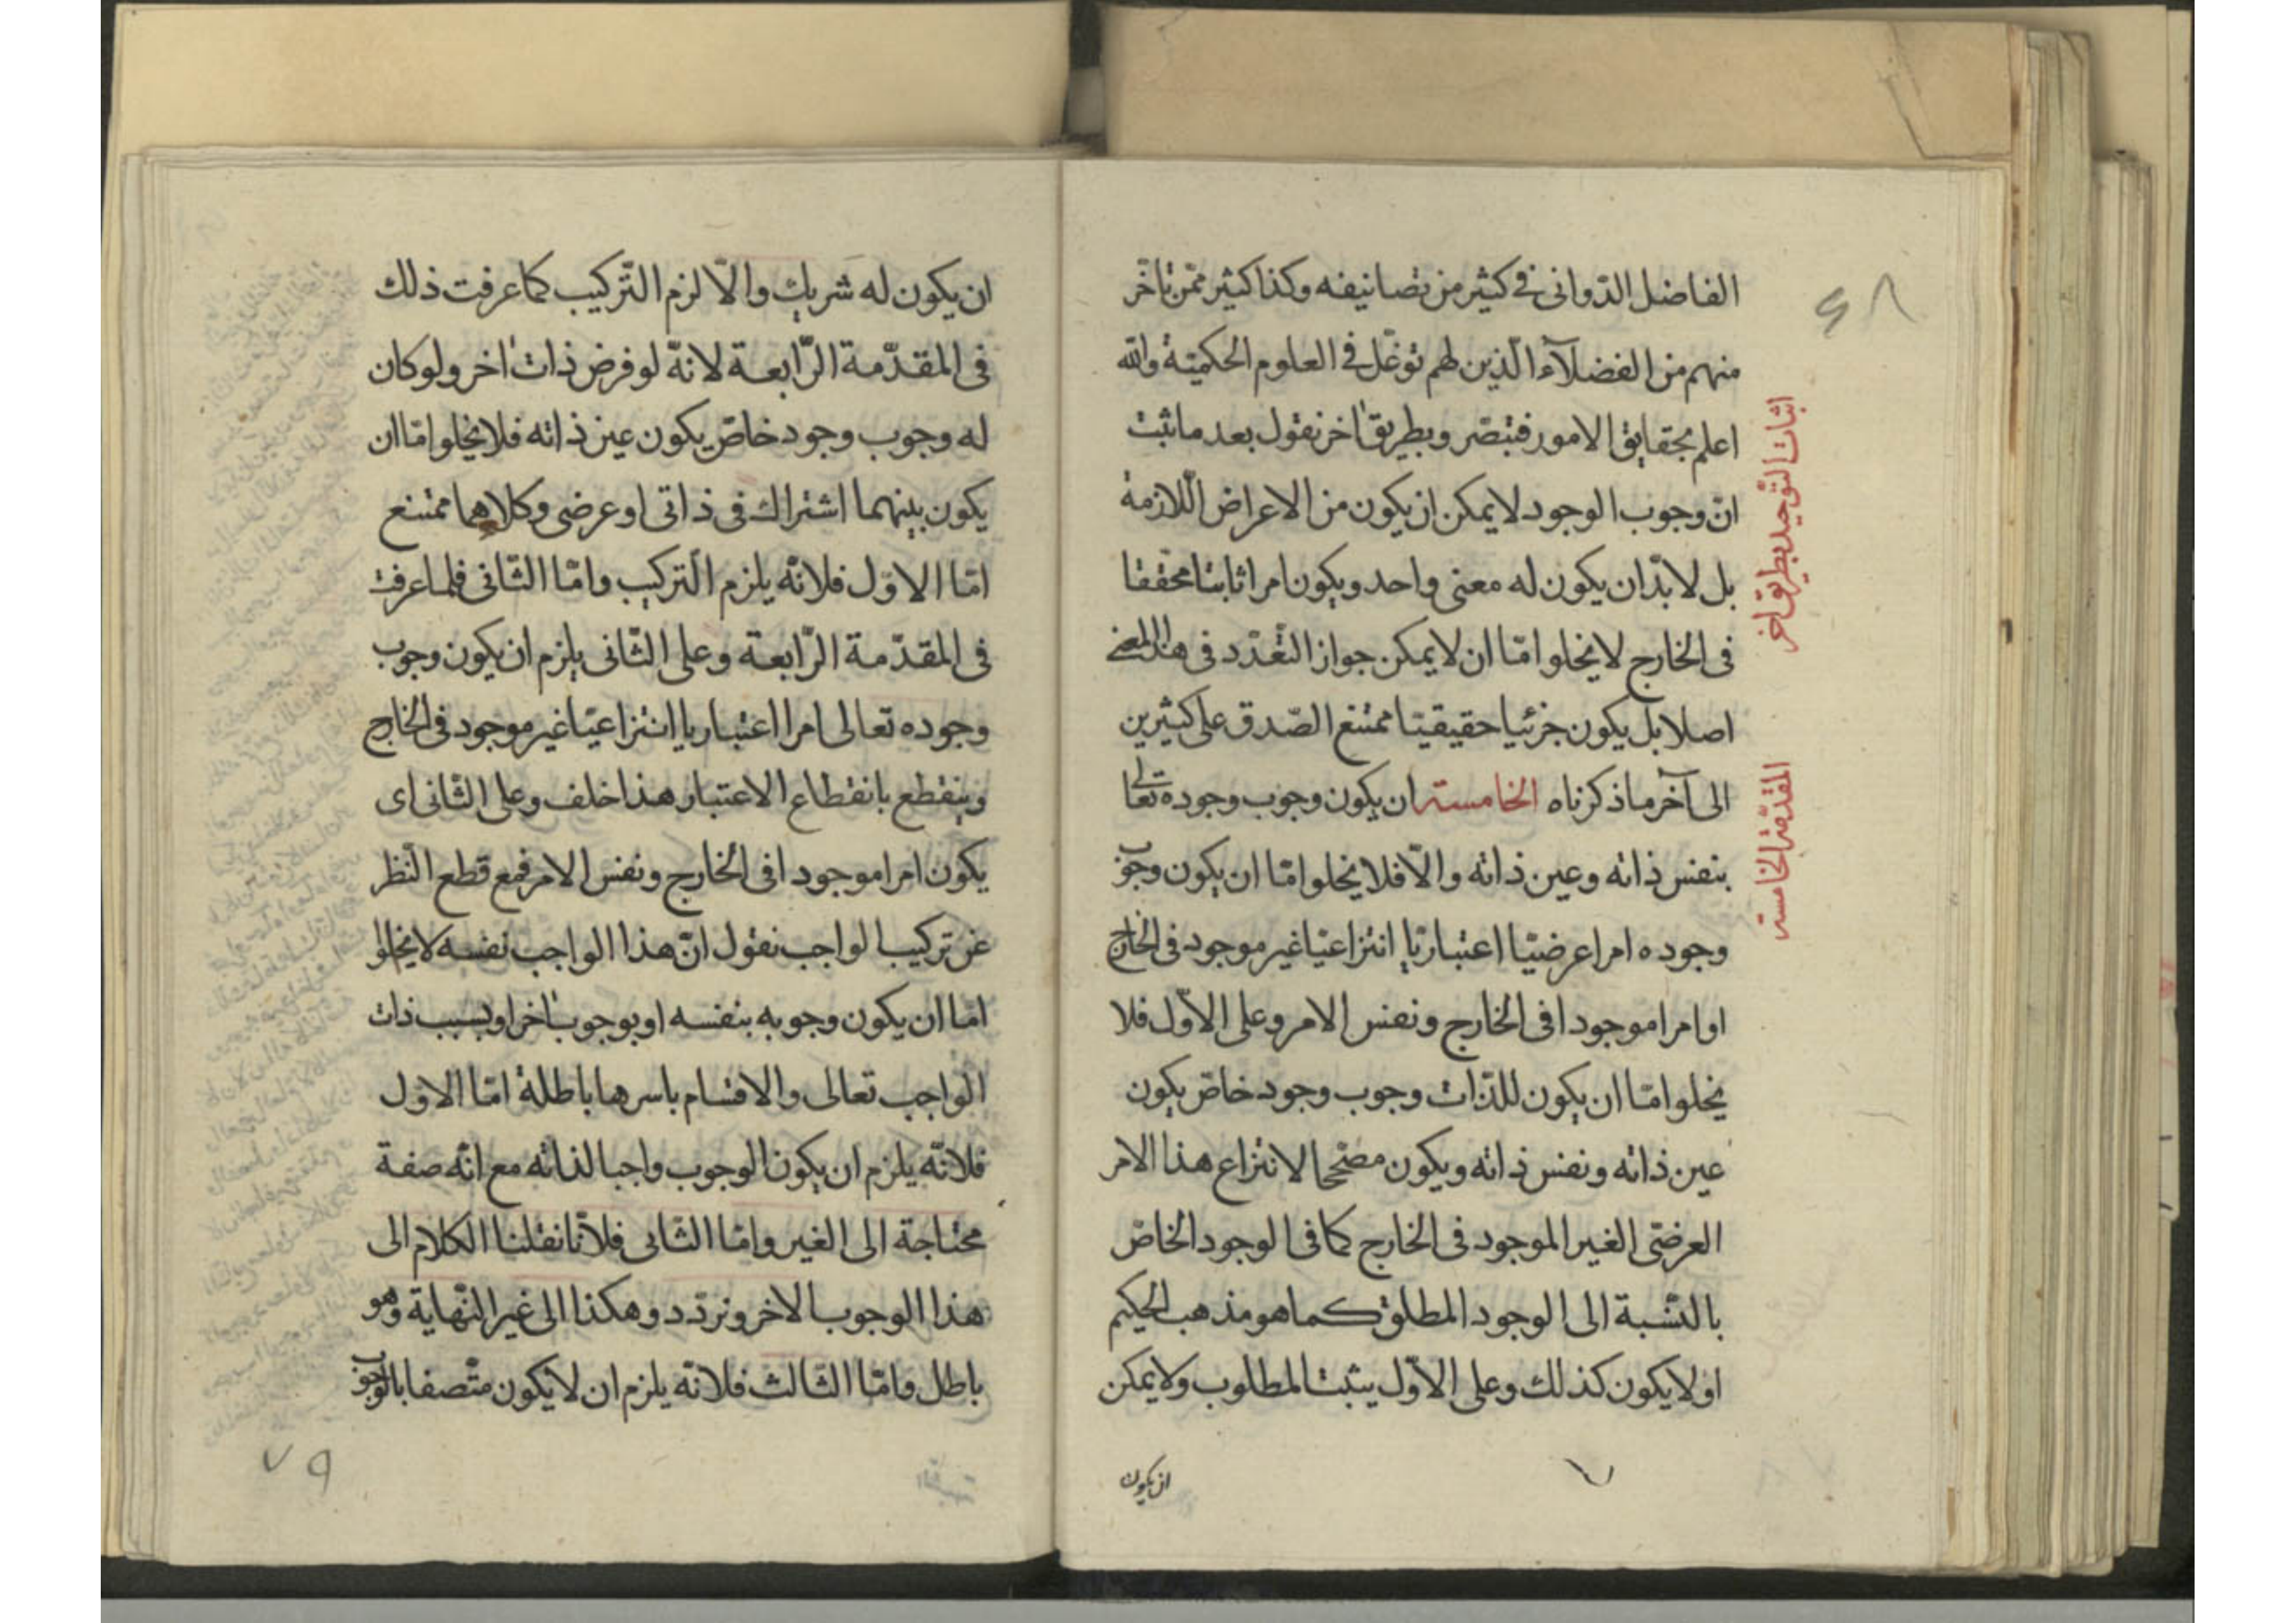 الفاضل الدّوانى فى كثير من تصانيفه وكذا كثير ممّن تأخّر
منهم من الفضلآء الّذين لهم توغّل فى العلوم الحكميّة والله
اعلم بحقايق الامور فتبصّر وبطريق اخر نقول بعد ما ثبت
انّ وجوب الوجود لا يمكن ان يكون من الاعراض اللّازمة
بل لا بدّ ان يكون له معنى واحد ويكون امرا ثابتا محققا
فى الخارج لا يخلو امّا ان لا يمكن جواز التّعدّد فى هذا المعنى
اصلا بل يكون جزئيا حقيقيّا ممتنع الصّدق على كثيرين
الى آخر ما ذكرناه الخامسة ان يكون وجوب وجوده تعالى
بنفس ذاته وعين ذاته والّا فلا يخلو امّا ان يكون وجوب
وجوده امرا عرضيّا اعتباريّا انتزاعيّا غير موجود فى الخارج
او امرا موجودا فى الخارج ونفس الامر وعلى الاوّل فلا
يخلو امّا ان يكون للذّات وجوب وجود خاصّ يكون
عين ذاته ونفس ذاته ويكون مصحّحا لانتزاع هذا الامر
العرضىّ الغير الموجود فى الخارج كما فى الوجود الخاصّ
بالنّسبة الى الوجود المطلق كما هو مذهب الحكيم
او لا يكون كذلك وعلى الاوّل يثبت المطلوب ولا يمكن
ان يكون
اثبات التّوحيد بطريق اخر
المقدّمة الخامسة
ان يكون له شريك والّا لزم التّركيب كما عرفت ذلك
فى المقدّمة الرّابعة لانّه لو فرض ذات اخر ولو كان
له وجوب وجود خاصّ يكون عين ذاته فلا يخلو امّا ان
يكون بينهما اشتراك فى ذاتى او عرضى وكلاهما ممتنع
امّا الاوّل فلانّه يلزم التركيب وامّا الثّانى فلما عرفت
فى المقدّمة الرّابعة وعلى الثّانى يلزم ان يكون وجوب
وجوده تعالى امرا اعتباريا انتزاعيّا غير موجود فى الخارج
وينقطع بانقطاع الاعتبار هذا خلف وعلى الثّانى اى
يكون امرا موجودا فى الخارج ونفس الامر فمع قطع النّظر
عن تركيب الواجب نقول انّ هذا الواجب نفسه لا يخلو
امّا ان يكون وجوبه بنفسه او بوجوب اخر او بسبب ذات
الواجب تعالى والاقسام باسرها باطلة امّا الاوّل
فلانّه يلزم ان يكون الوجوب واجبا لذاته مع انّه صفة
محتاجة الى الغير وامّا الثّانى فلانّا نقلنا الكلام الى
هذا الوجوب الاخر ونردّد وهكذا الى غير النّهاية وهو
باطل وامّا الثّالث فلانّه يلزم ان لا يكون متّصفا بالوجوب